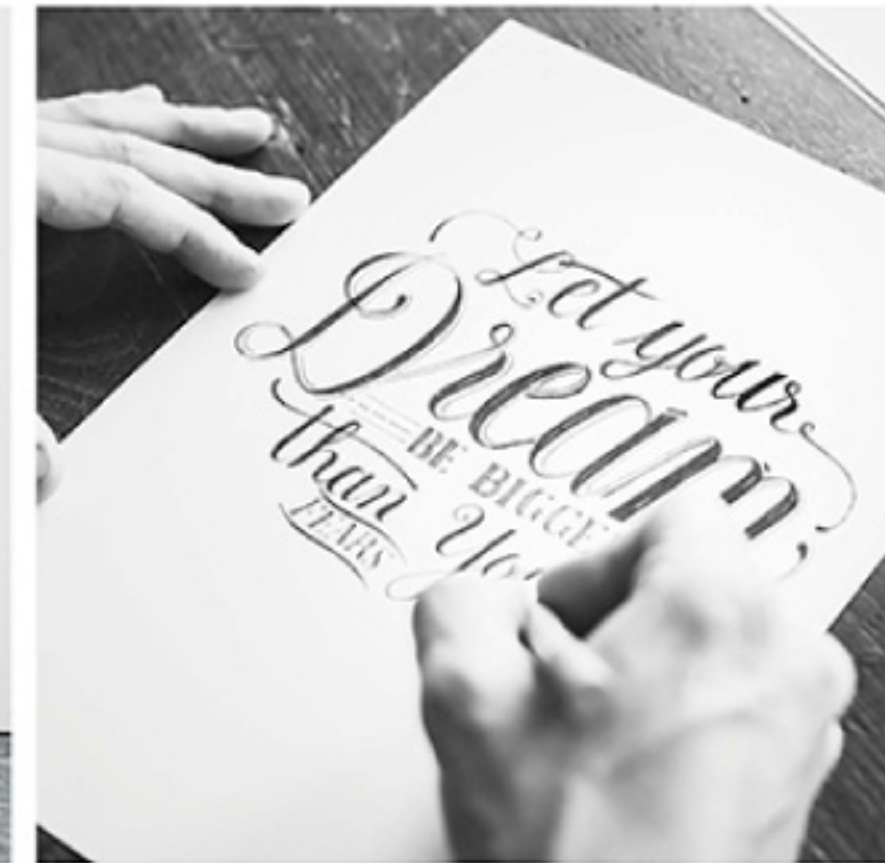 Let your
Dream
BE BIGGE
than Yo
FEARS